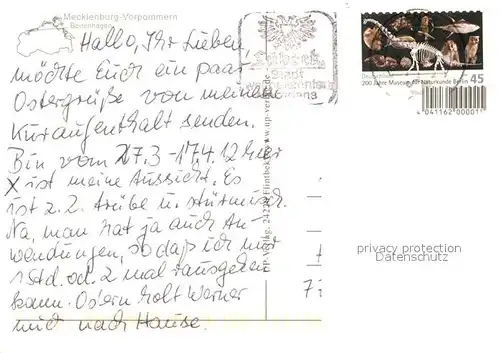 Mecklenburg-Vorpommern
Boltenhagen
Hallo, Ihr Lieben,
möchte Euch ein paar
Ostergrüße von meinem
Kuraufenthalt senden.
Bin vom 27.3 - 17.4.12 hier
X ist meine Aussicht. Es
ist z.Z. trübe u. stürmisch.
Na, man hat ja auch An-
wendungen, sodaß ich nur
1 Std. od. 2 mal rausgehen
kann. Ostern holt Werner
mich nach Hause.
Lübeck
Stadt
200 Jahre Museum für Naturkunde Berlin 45
4 041162 000001
privacy protection
Datenschutz